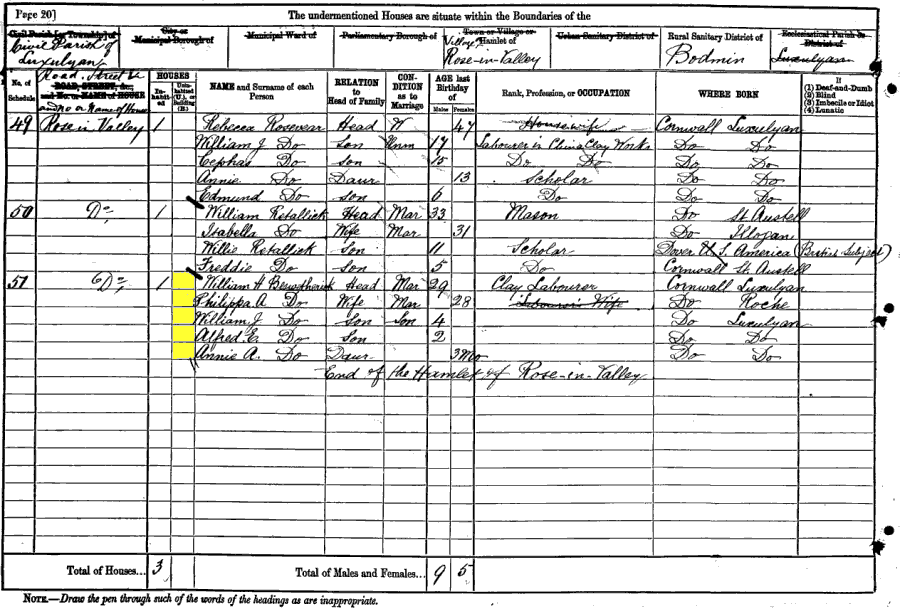 Page 20] The undermentioned Houses are situate within the Boundaries of the
Civil Parish [or Township] of City or Municipal Borough of Municipal Ward of Parliamentary Borough of Town or Village or Hamlet of Urban Sanitary District of Rural Sanitary District of Ecclesiastical Parish or District of
Civil Parish of Luxulyan Village Rose-in-Valley Bodmin Luxulyan
No. of Schedule ROAD, STREET, &c., and No. or NAME of HOUSE Road, Street & and No or Name of House HOUSES Inhabited Uninhabited (U.), or Building (B.) NAME and Surname of each Person RELATION to Head of Family CONDITION as to Marriage AGE last Birthday of Males Females Rank, Profession, or OCCUPATION WHERE BORN If (1) Deaf-and-Dumb (2) Blind (3) Imbecile or Idiot (4) Lunatic
49 Rose in Valley 1 Rebecca Rosevear Head W 47 Housewife Cornwall Luxulyan
William J Do Son Unm 17 Labourer in China Clay Works Do Do
Cephas Do Son 15 Do Do Do Do
Annie Do Daur 13 Scholar Do Do
Edmund Do Son 6 Do Do Do
50 Do 1 William Retallick Head Mar 33 Mason Do St Austell
Isabella Do Wife Mar 31 Do Illogan
Willie Retallick Son 11 Scholar Dover U S. America (British Subject)
Freddie Do Son 5 Do Cornwall St. Austell
51 Do 1 William H Head Mar 29 Clay Labourer Cornwall Luxulyan
Philippa A. Do Wife Mar 28 Labourer's Wife Do Roche
William J. Do Son Son 4 Do Luxulyan
Alfred E. Do Son 2 Do Do
Annie A. Do Daur 3 Mo Do Do
End of the Hamlet of Rose-in-Valley
Total of Houses... 3 Total of Males and Females... 9 5
NOTE.—Draw the pen through such of the words of the headings as are inappropriate.